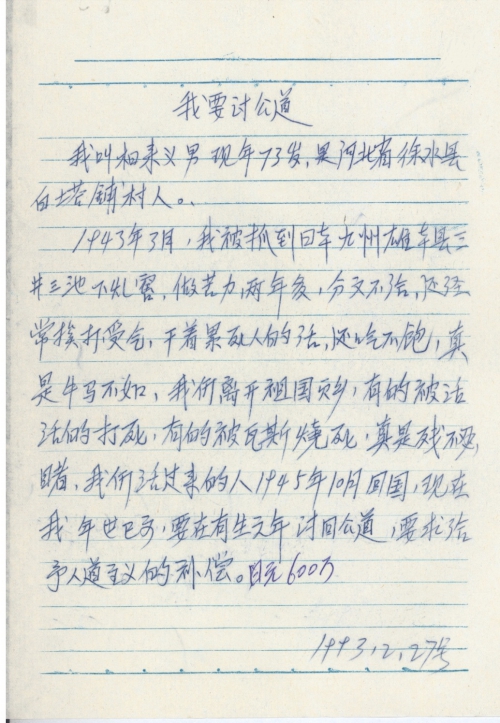 我要讨公道
我叫相来义 男 现年73岁,是河北省徐水县
白塔铺村人。
1943年3月,我被抓到日本九州雄本县三
井三池下扎窑,做苦力,两年多,分文不给,还经
常挨打受气,干着累死人的活,还吃不饱,真
是牛马不如,我们离开祖国家乡,有的被活
活的打死,有的被瓦斯燒死,真是残不忍
睹,我们活过来的人1945年10月回国,现在
我年世已高,要在有生元年讨回公道,要求给
予人道主义的补偿。日元600万
1993.2.27号